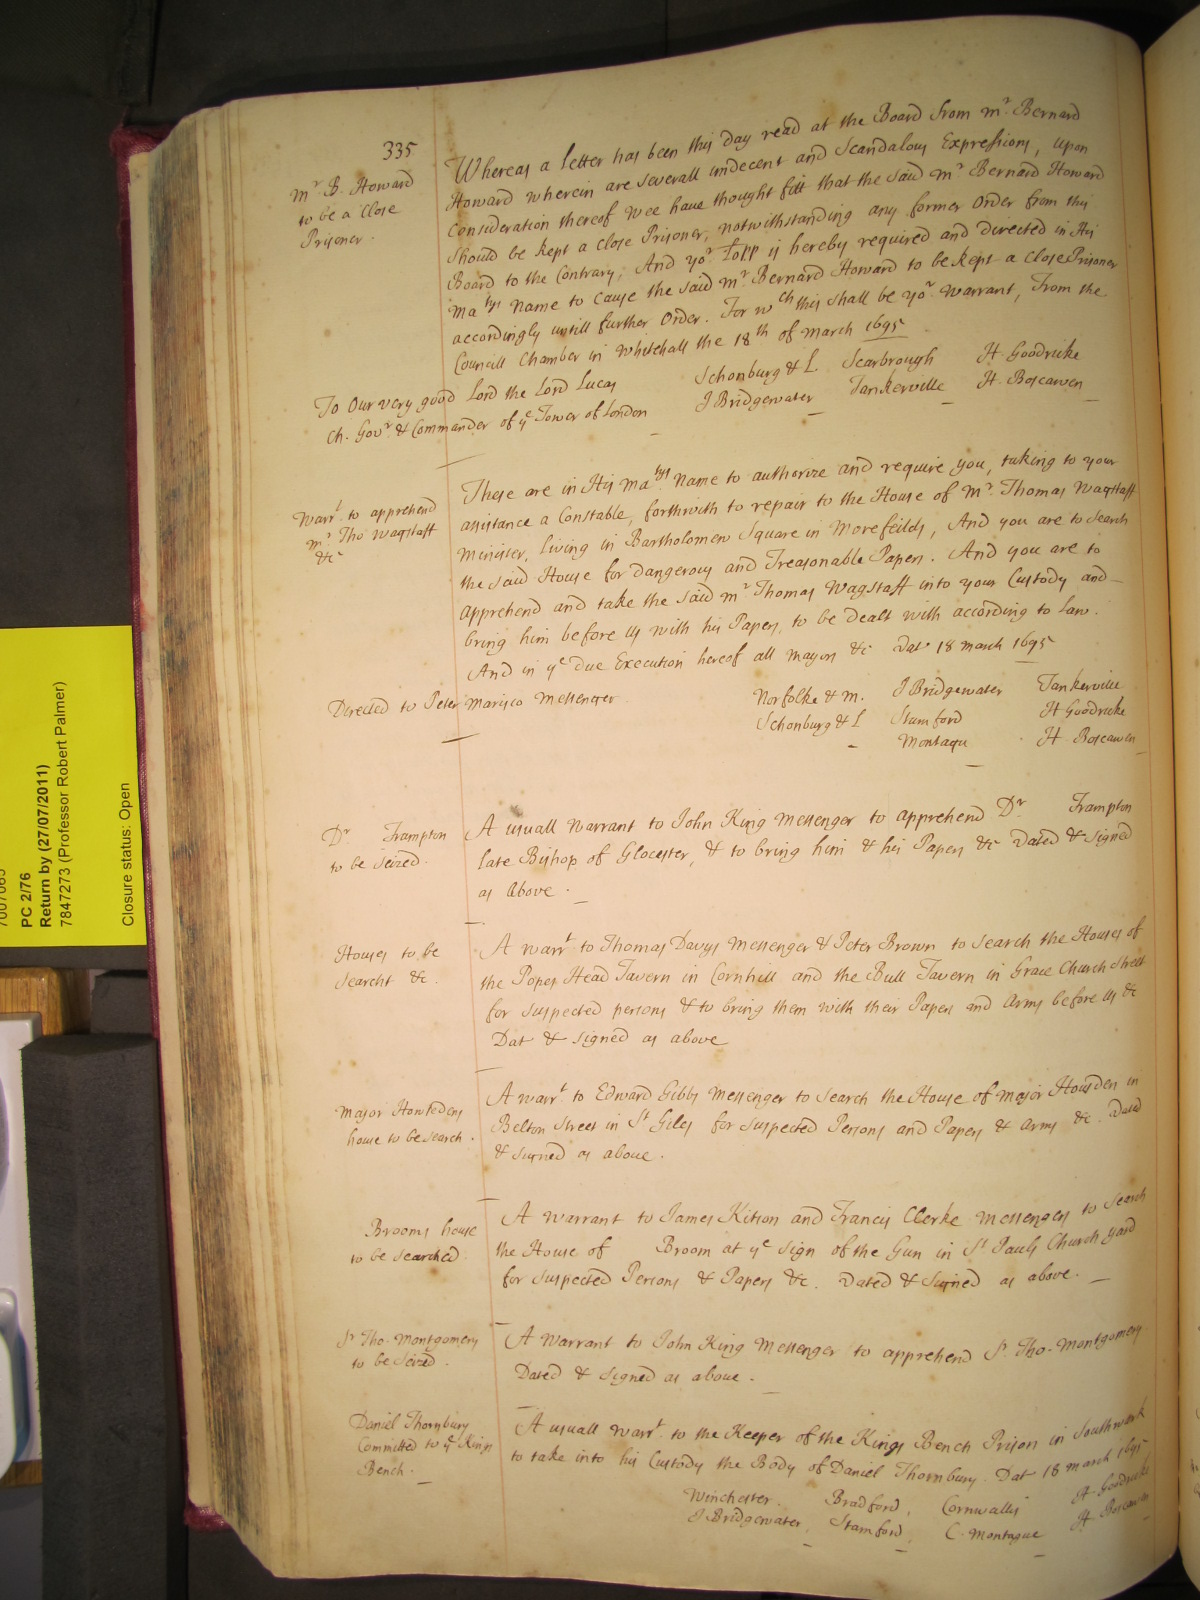 335
Mr B. Howard
to be a Close
Prisoner.
Whereas a letter has been this Day read at the Board from Mr Bernard
Howard wherein are severall undecent and Scandalous Expressions, upon
Consideration thereof Wee have thought fitt that the said Mr Bernard Howard
should be kept a close Prisoner, notwithstanding any former Order from this
Board to the Contrary; And yor Lopp is hereby required and directed in His
Matys Name to cause the said Mr Bernard Howard to be kept a close Prisoner
accordingly untill further Order. For wch this shall be yor Warrant, From the
Councill Chamber in Whitehall the 18th of March 1695
Schonburg & L Scarbrough H Goodricke
J Bridgewater Tankerville H. Boscawen
To Our very good Lord the Lord Lucas
Ch. Govr & Commander of ye Tower of London
Warrt to apprehend
Mr Tho Wagstaff
&c
These are in His Matys Name to authorize and require you, taking to your
assistance a Constable, forthwith to repair to the House of Mr Thomas Wagstaff
Minister, living in Bartholomew Square in Morefeilds, And you are to search
the said House for dangerous and Treasonable Papers. And you are to
apprehend and take the said Mr Thomas Wagstaff into your Custody and
bring him before us with his Papers, to be dealt with according to Law.
And in ye due Execution hereof all Mayors &c Dat 18 March 1695
Directed to Peter Marisco Messenger
Norfolke & M. J Bridgewater Tankerville
Schonburg & L Stamford H Goodricke
Montagu H Boscawen
Dr Frampton
to be seized.
A usuall Warrant to John King Messenger to apprehend Dr Frampton
late Bishop of Glocester, & to bring him & his Papers &c Dated & signed
as Above.
Houses to be
searcht &c.
A Warrt to Thomas Davys Messenger & Peter Brown to search the Houses of
the Popes Head Tavern in Cornhill and the Bull Tavern in Grace Church Street
for suspected persons & to bring them with their Papers and Arms before us &c
Dat & signed as above
Major Howsdens
house to be search.
A warrt to Edward Gibbs Messenger to search the House of Major Howsden in
Belton Street in St Giles for suspected Persons and Papers & Arms &c. Dated
& signed as above.
Brooms house
to be searched
A Warrant to James Kitson and Francis Clerke Messengers to search
the House of Broom at ye sign of the Gun in St Pauls Church yard
for suspected Persons & Papers &c. Dated & Signed as above.
Sr Tho. Montgomery
to be seized.
A Warrant to John King Messenger to apprehend Sr Tho. Montgomery.
Dated & signed as above.
Daniel Thornbury
Committed to ye Kings
Bench.
A usuall Warrt to the Keeper of the Kings Bench Prison in Southwark
to take into his Custody the Body of Daniel Thornbury. Dat 18 March 1695
Winchester. Bradford, Cornwallis H Goodricke
J Bridgewater, Stamford, C. Montague H Boscawen
PC 2/76
Return by (27/07/2011)
7847273 (Professor Robert Palmer)
Closure status: Open